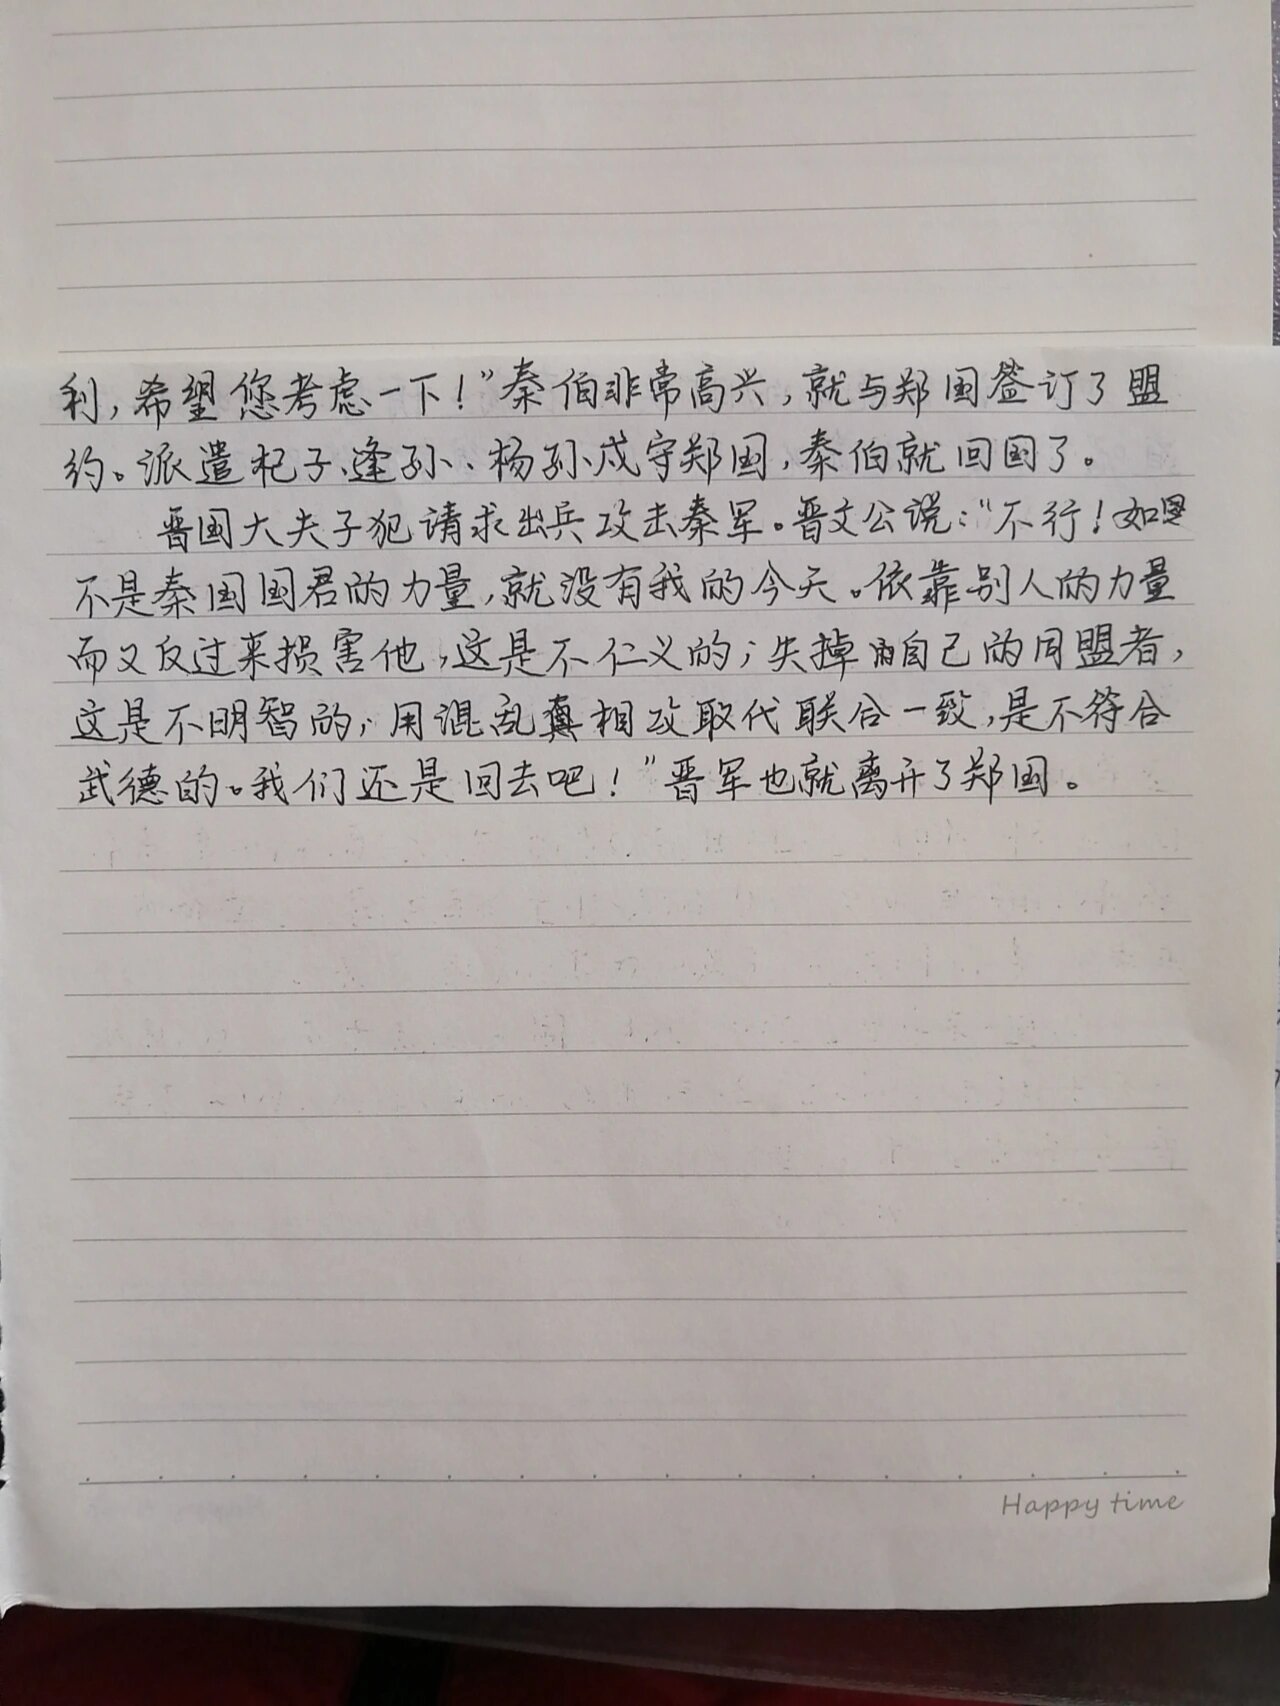 利，希望您考虑一下！”秦伯非常高兴，就与郑国签订了盟
约。派遣杞子、逢孙、杨孙戍守郑国，秦伯就回国了。
晋国大夫子犯请求出兵攻击秦军。晋文公说：“不行！如
不是秦国国君的力量，就没有我的今天。依靠别人的力量
而又反过来损害他，这是不仁义的；失掉自己的同盟者，
这是不明智的；用混乱相攻取代联合一致，是不符合
武德的。我们还是回去吧！”晋军也就离开了郑国。
Happy time